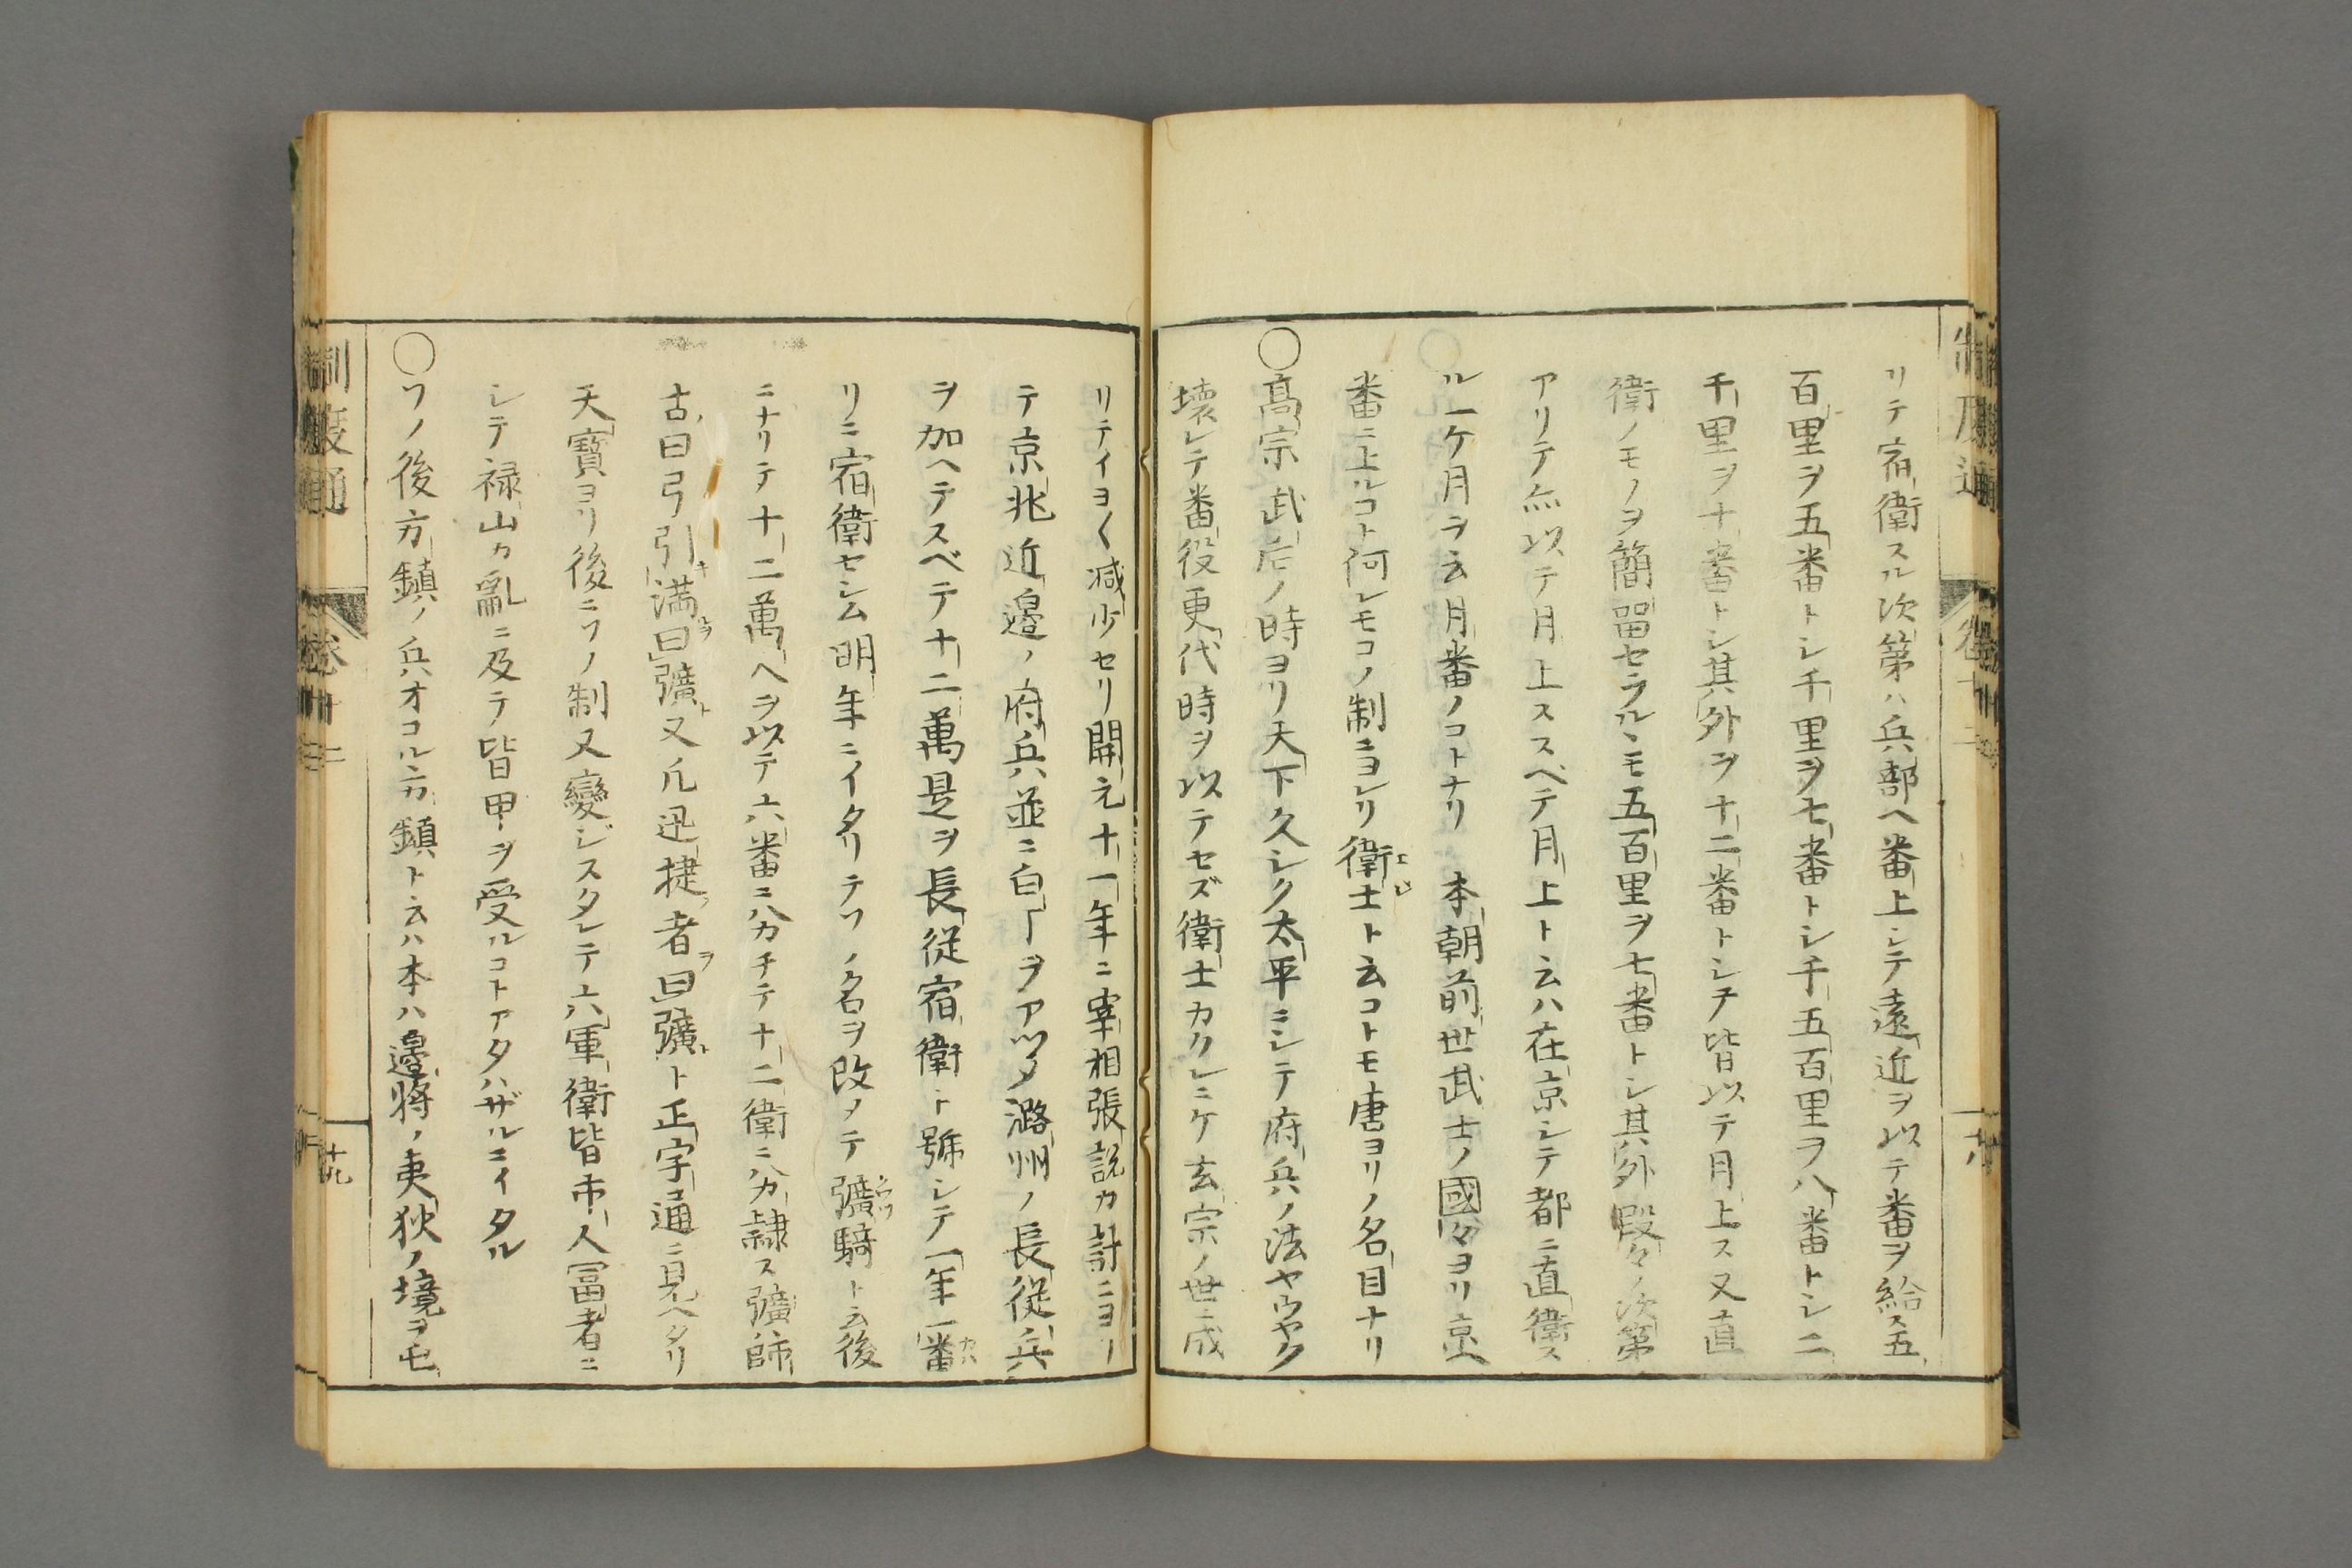 リテ宿衛スル次第ハ兵部ヘ番上シテ遠近ヲ以テ番ヲ給ス五
百里ヲ五番トシ千里ヲ七番トシ千五百里ヲ八番トシ二
千里ヲ十番トシ其外ヲ十二番トシテ皆以テ月上ス又直
衛ノモノヲ簡留セラルヽモ五百里ヲ七番トシ其外段々ノ次第
アリテ亦以テ月上ススベテ月上ト云ハ在京シテ都ニ直衛ス
ル一ケ月ヲ云月番ノコトナリ 本朝前世武士ノ國々ヨリ京ヘ
番ニ上ルコト何レモコノ制ニヨレリ衛士ト云コトモ唐ヨリノ名目ナリ
○高宗武后ノ時ヨリ天下久シク太平ニシテ府兵ノ法ヤウヤク
壊レテ番役更代時ヲ以テセズ衛士カクレニケ玄宗ノ世ニ成
リテイヨ〱減少セリ開元十一年ニ宰相張説カ計ニヨリ
テ京兆近邊ノ府兵並ニ白丁ヲアツメ潞州ノ長從兵
ヲ加ヘテスベテ十二萬是ヲ長從宿衛ト號シテ一年一番カハ
リニ宿衛セシム明年ニイタリテソノ名ヲ改メテ彍騎ト云後
ニナリテ十二萬人ヲ以テ六番ニ分チテ十二衛ニ分隷ス彍師
古曰弓引満曰彍又凡迅捷者曰彍ト正字通ニ見ヘタリ
天寶ヨリ後ニソノ制又變ジスタレテ六軍衛皆市人冨者ニ
シテ禄山カ亂ニ及テ皆甲ヲ受ルコトアタハザルニイタル
○ソノ後方鎮ノ兵オコル方鎮ト云ハ本ハ邊將ノ夷狄ノ境ヲ屯
制度通
卷十二
十九